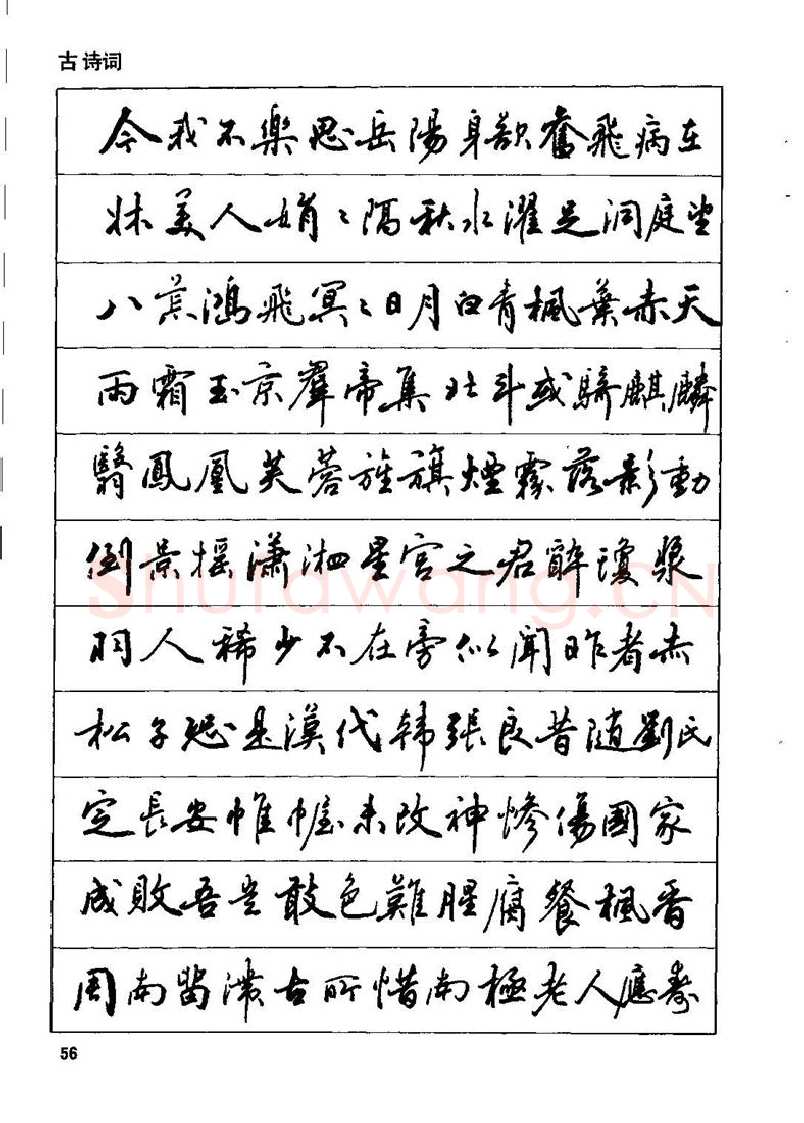 古诗词
今我不樂思岳陽身欲奮飛病在
牀美人娟〻隔秋水濯足洞庭望
八荒鴻飛冥〻日月白青楓葉赤天
雨霜玉京羣帝集北斗或騎麒麟
翳鳳凰芙蓉旌旗煙霧落影動
倒景摇潇湘星宫之君醉瓊漿
羽人稀少不在旁似聞昨者赤
松子恐是漢代韩張良昔随劉氏
定長安帷幄未改神惨傷國家
成敗吾豈敢色難腥腐餐楓香
周南留滞古所惜南極老人應壽
56
Shufawang.CN